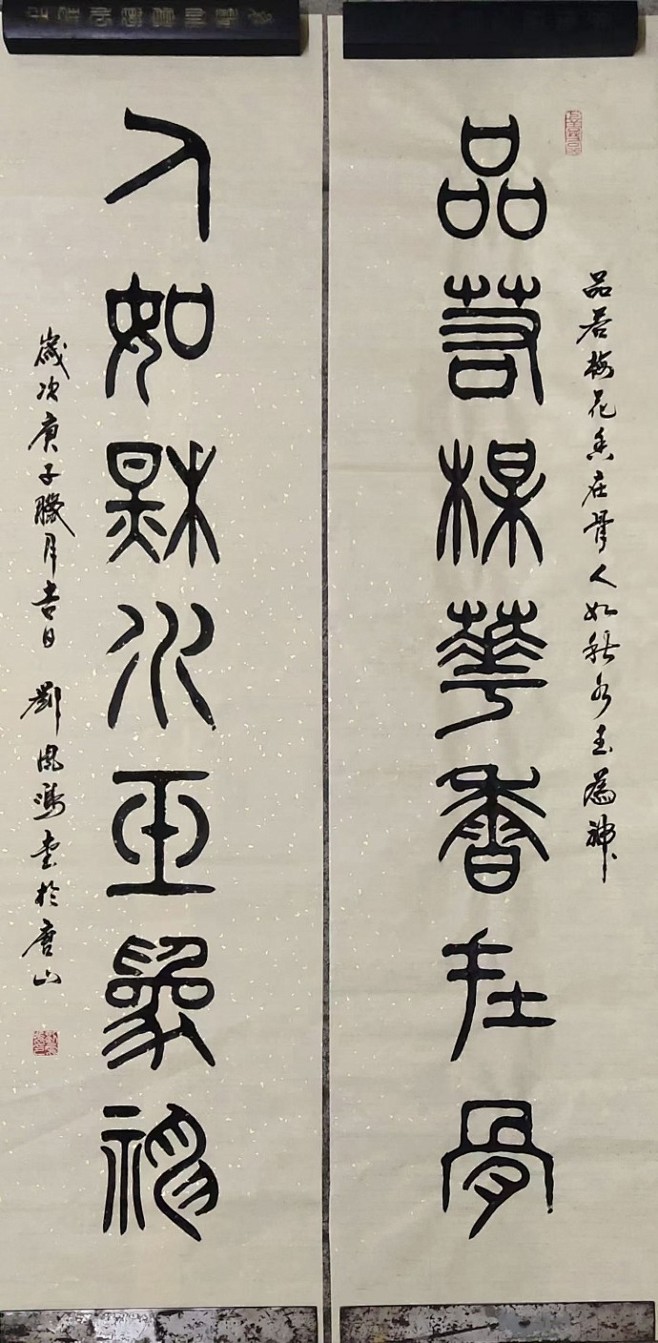 品若梅花香在骨
品若梅花香在骨人如秋水玉為神
人如秋水玉為神
歲次庚子臘月吉日 劉鳳 書於唐山